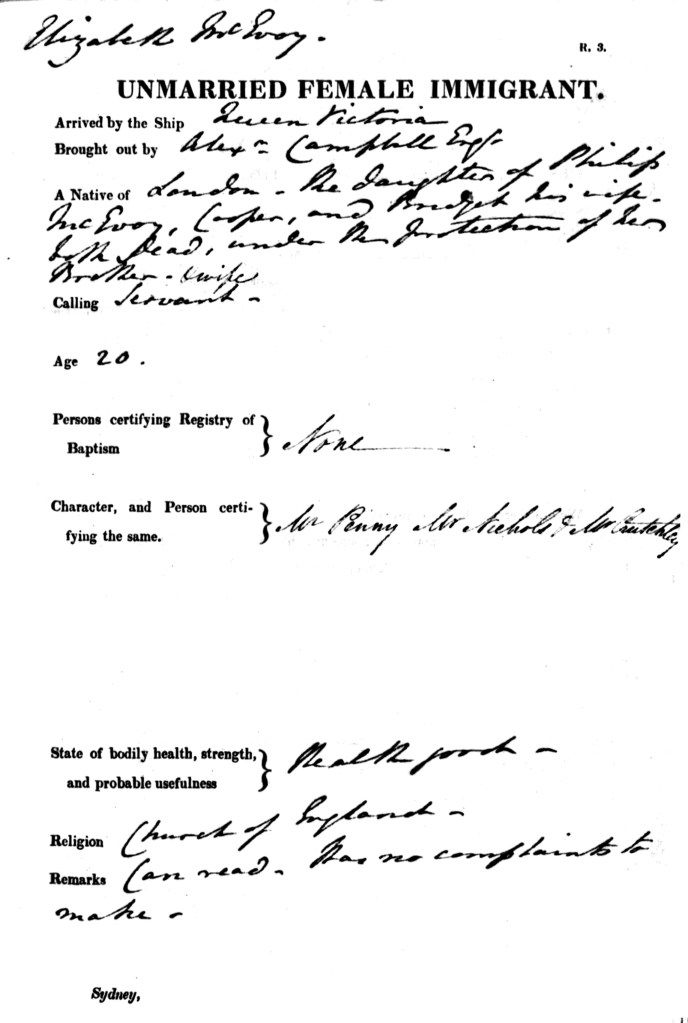 Elizabeth McEvoy.
R. 3.
UNMARRIED FEMALE IMMIGRANT.
Arrived by the Ship Queen Victoria
Brought out by Alexr. Campbell Esqr
A Native of London - the daughter of Philip
McEvoy, Cooper, and Bridget his wife -
both dead, under the protection of her
Brother - & wife
Calling Servant -
Age 20.
Persons certifying Registry of
Baptism } None
Character, and Person certi-
fying the same. } Mr Penny Mr Nichols & Mr Crutchley
State of bodily health, strength,
and probable usefulness } Health good -
Religion Church of England -
Remarks Can read - Has no complaints to
make -
Sydney,